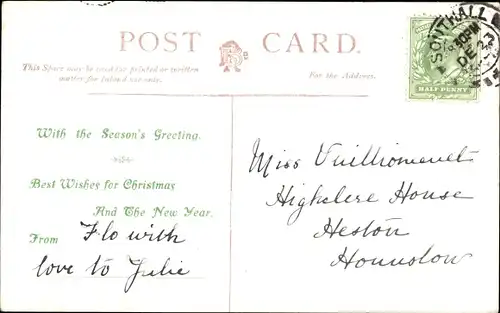 POST CARD.
This Space may be used for printed or written
matter for Inland use only.
For the Address.
SOUTHALL
PM
DE
HALF PENNY
With the Season's Greeting.
Best Wishes for Christmas
And The New Year.
From Flo with
love to Julie
Miss Vuilliomenet
Highclere House
Heston
Hounslow